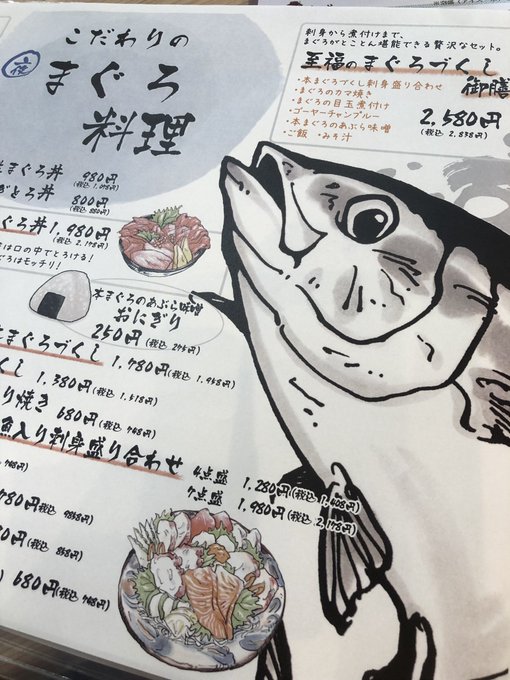 こだわりの
夜
まぐろ
料理
刺身から煮付けまで、
まぐろがとことん堪能できる贅沢なセット。
至福のまぐろづくし
御膳
・本まぐろづくし刺身盛り合わせ
・まぐろのカマ焼き
・まぐろの目玉煮付け
・ゴーヤーチャンプルー
・本まぐろのあぶら味噌
・ご飯 ・みそ汁
2,580円
(税込 2,838円)
まぐろ丼 980円
(税込 1,078円)
とろ丼 800円
(税込 880円)
ぐろ丼 1,980円
(税込 2,178円)
は口の中でとろける!
ろはモッチリ!
本まぐろのあぶら味噌
おにぎり
250円(税込 275円)
まぐろづくし 1,780円(税込 1,958円)
くし 1,380円(税込 1,518円)
り焼き 680円(税込 748円)
魚入り刺身盛り合わせ
4点盛 1,280円(税込 1,408円)
7点盛 1,980円(税込 2,178円)
748円)
780円(税込 858円)
80円(税込 858円)
680円(税込 748円)